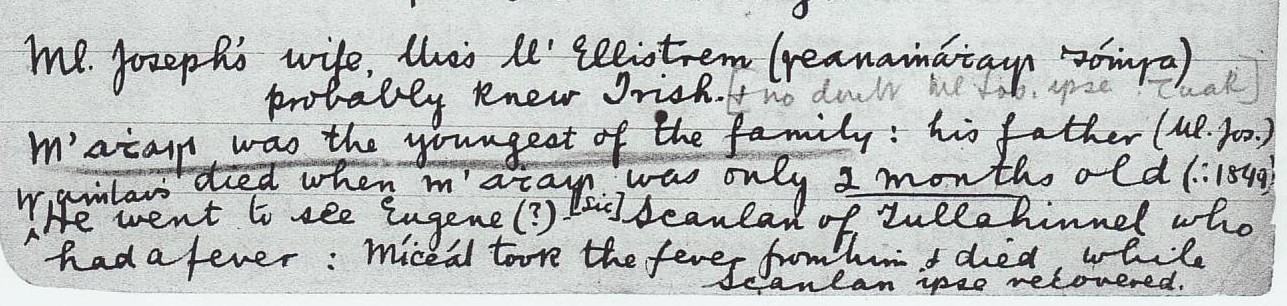 Ml. Joseph's wife, Miss M' Ellistrem (seanaṁáṫair dóṁsa)
probably knew Irish. [& no doubt Ml Jos. ipse.
M'aṫair was the youngest of the family: his father (Ml. Jos.)
died when m'aṫair was only 2 months old (∴ 1849)
He went to see Eugene (?) [sic] Scanlan of Tullahinnel who
had a fever : Mícéál took the fever from him & died, while
Scanlan ipse recovered.